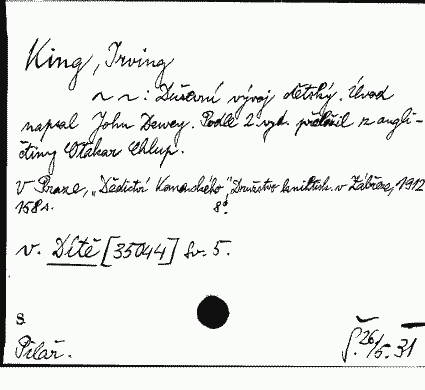 King, Irving
~ ~ : Duševní vývoj dětský. Úvod
napsal John Dewey. Podle 2. vyd. přeložil z angli-
čtiny Otakar Chlup.
V Praze, „Dědictví Komenského" Družstvo knihtisk. v Zábřeze, 1912
158 s. 8°.
v. Dítě [35044] Sv. 5.
S.
Pilař.
26/5. 31